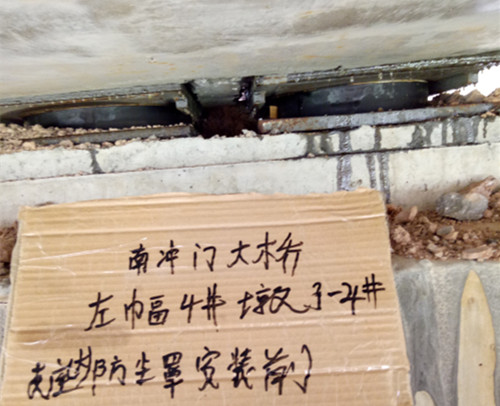 南冲门大桥
左巾畐4# 墩 3-4#
支座防尘罩安装前